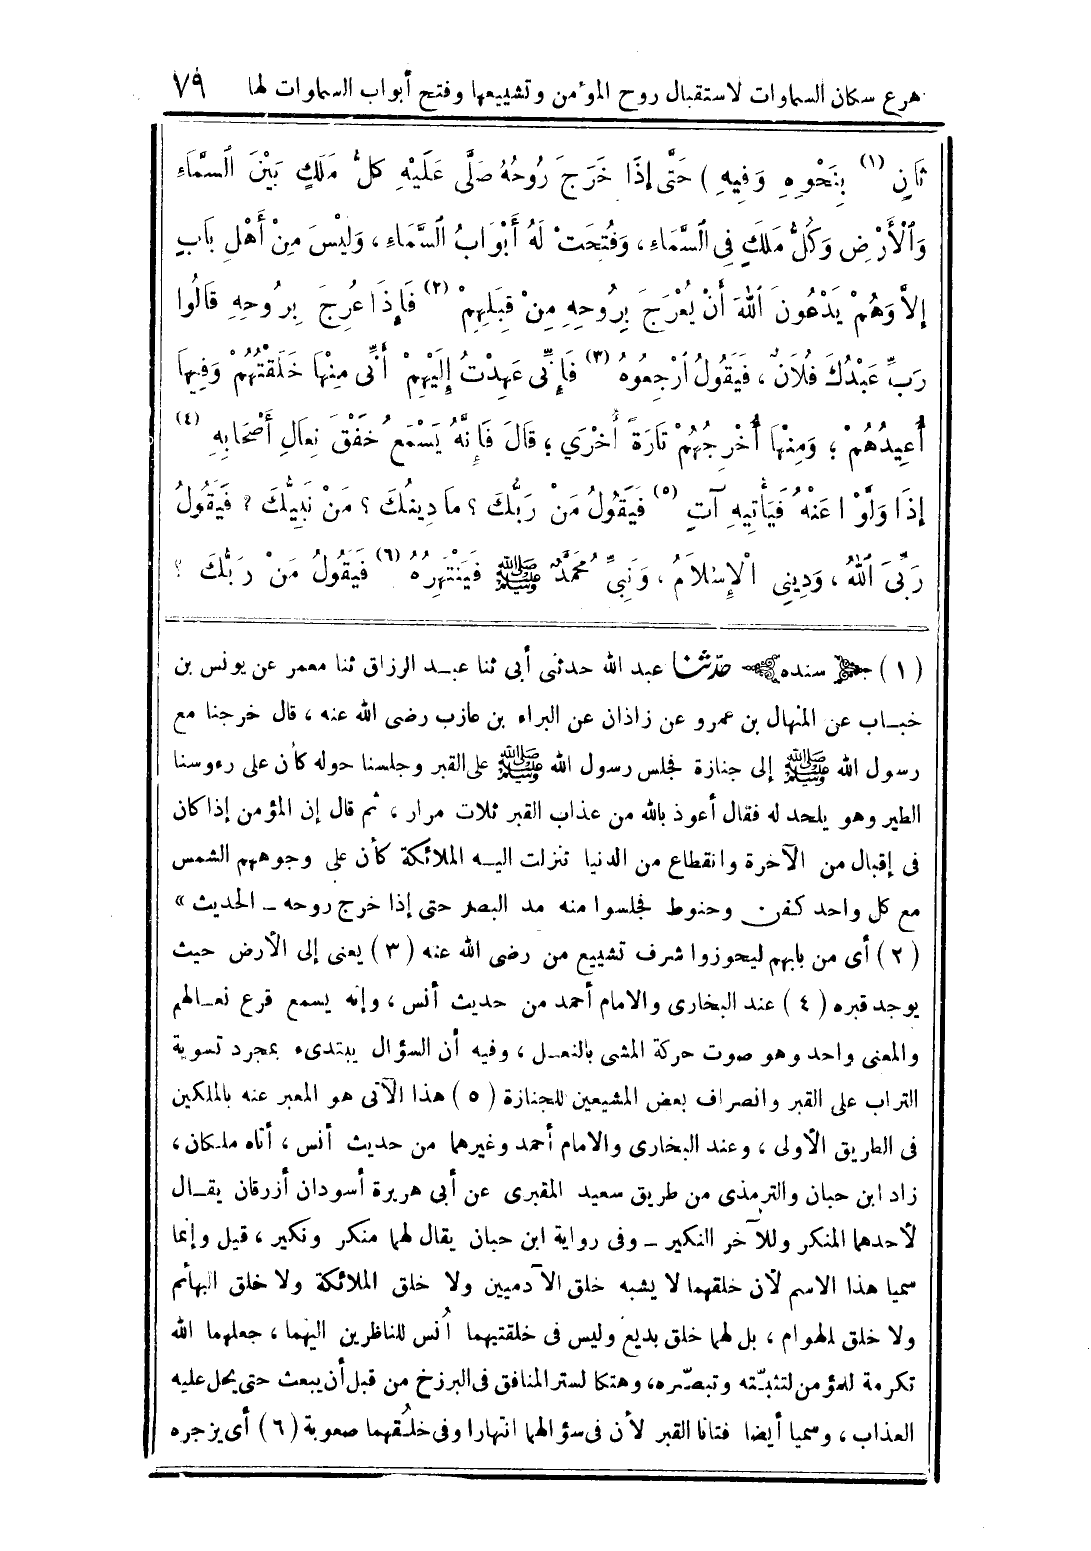 هرع سكان السماوات لاستقبال روح المؤمن وتشييعها وفتح أبواب السماوات لها ٧٩
ثَانٍ (١) بِنَحْوِهِ وَفِيهِ ) حَتَّى إِذَا خَرَجَ رُوحُهُ صَلَّى عَلَيْهِ كُلُّ مَلَكٍ بَيْنَ السَّمَاءِ
وَٱلْأَرْضِ وَكُلُّ مَلَكٍ فِى ٱلسَّمَاءِ ، وَفُتِحَتْ لَهُ أَبْوَابُ ٱلسَّمَاءِ ، وَلَيْسَ مِنْ أَهْلِ بَابٍ
إِلاَّ وَهُمْ يَدْعُونَ ٱللهَ أَنْ يُعْرَجَ بِرُوحِهِ مِنْ قِبَلِهِمْ (٢) فَإِذَا عُرِجَ بِرُوحِهِ قَالُوا
رَبِّ عَبْدُكَ فُلَانٌ ، فَيَقُولُ ٱرْجِعُوهُ (٣) فَإِنِّى عَهِدْتُ إِلَيْهِمْ أَنِّى مِنْهَا خَلَقْتُهُمْ وَفِيهَا
أُعِيدُهُمْ ؛ وَمِنْهَا أُخْرِجُهُمْ تَارَةً أُخْرَي ؛ قَالَ فَإِنَّهُ يَسْمَعُ خَفْقَ نِعَالِ أَصْحَابِهِ (٤)
إِذَا وَلَّوْا عَنْهُ فَيَأْتِيهِ آتٍ (٥) فَيَقُولُ مَنْ رَبُّكَ ؟ مَا دِينُكَ ؟ مَنْ نَبِيُّكَ ؟ فَيَقُولُ
رَبِّىَ ٱللهُ ، وَدِينِي الْإِسْلَامُ ، وَنَبِيِّ مُحَمَّدٌ ﷺ فَيَنْتَهِرُهُ (٦) فَيَقُولُ مَنْ رَبُّكَ ؟
(١) سنده حدّثنا عبد الله حدثنى أبى ثنا عبد الرزاق ثنا معمر عن يونس بن
خباب عن المنهال بن عمرو عن زاذان عن البراء بن عازب رضى الله عنه ، قال خرجنا مع
رسول الله ﷺ إلى جنازة فجلس رسول الله ﷺ على القبر وجلسنا حوله كأن على رءوسنا
الطير وهو يلحد له فقال أعوذ بالله من عذاب القبر ثلاث مرار ، ثم قال إن المؤمن إذا كان
فى إقبال من الآخرة وانقطاع من الدنيا تنزلت اليه الملائكة كأن على وجوههم الشمس
مع كل واحد كفن وحنوط فجلسوا منه مد البصر حتى إذا خرج روحه ـ الحديث »
(٢) أى من بابهم ليحوزوا شرف تشييع من رضى الله عنه (٣) يعنى إلى الأرض حيث
يوجد قبره (٤) عند البخارى والامام أحمد من حديث أنس ، وإنه يسمع قرع نعالهم
والمعنى واحد وهو صوت حركة المشى بالنعل ، وفيه أن السؤال يبتدىء بمجرد تسوية
التراب على القبر وانصراف بعض المشيعين للجنازة (٥) هذا الآتى هو المعبر عنه بالملكين
فى الطريق الأولى ، وعند البخارى والامام أحمد وغيرهما من حديث أنس ، أتاه ملكان ،
زاد ابن حبان والترمذى من طريق سعيد المقبرى عن أبى هريرة أسودان أزرقان يقال
لأحدهما المنكر وللآخر النكير ـ وفى رواية ابن حبان يقال لهما منكر ونكير ، قيل وإنما
سميا هذا الاسم لأن خلقهما لا يشبه خلق الآدميين ولا خلق الملائكة ولا خلق البهائم
ولا خلق الهوام ، بل لهما خلق بديع وليس فى خلقتيهما أُنس للناظرين اليهما ، جعلهما الله
تكرمة للمؤمن لتثبّته وتبصّره، وهتكا لستر المنافق فى البرزخ من قبل أن يبعث حتى يحل عليه
العذاب ، وسميا أيضا فتانا القبر لأن فى سؤالهما انتهارا وفى خلُقهما صعوبة (٦) أى يزجره